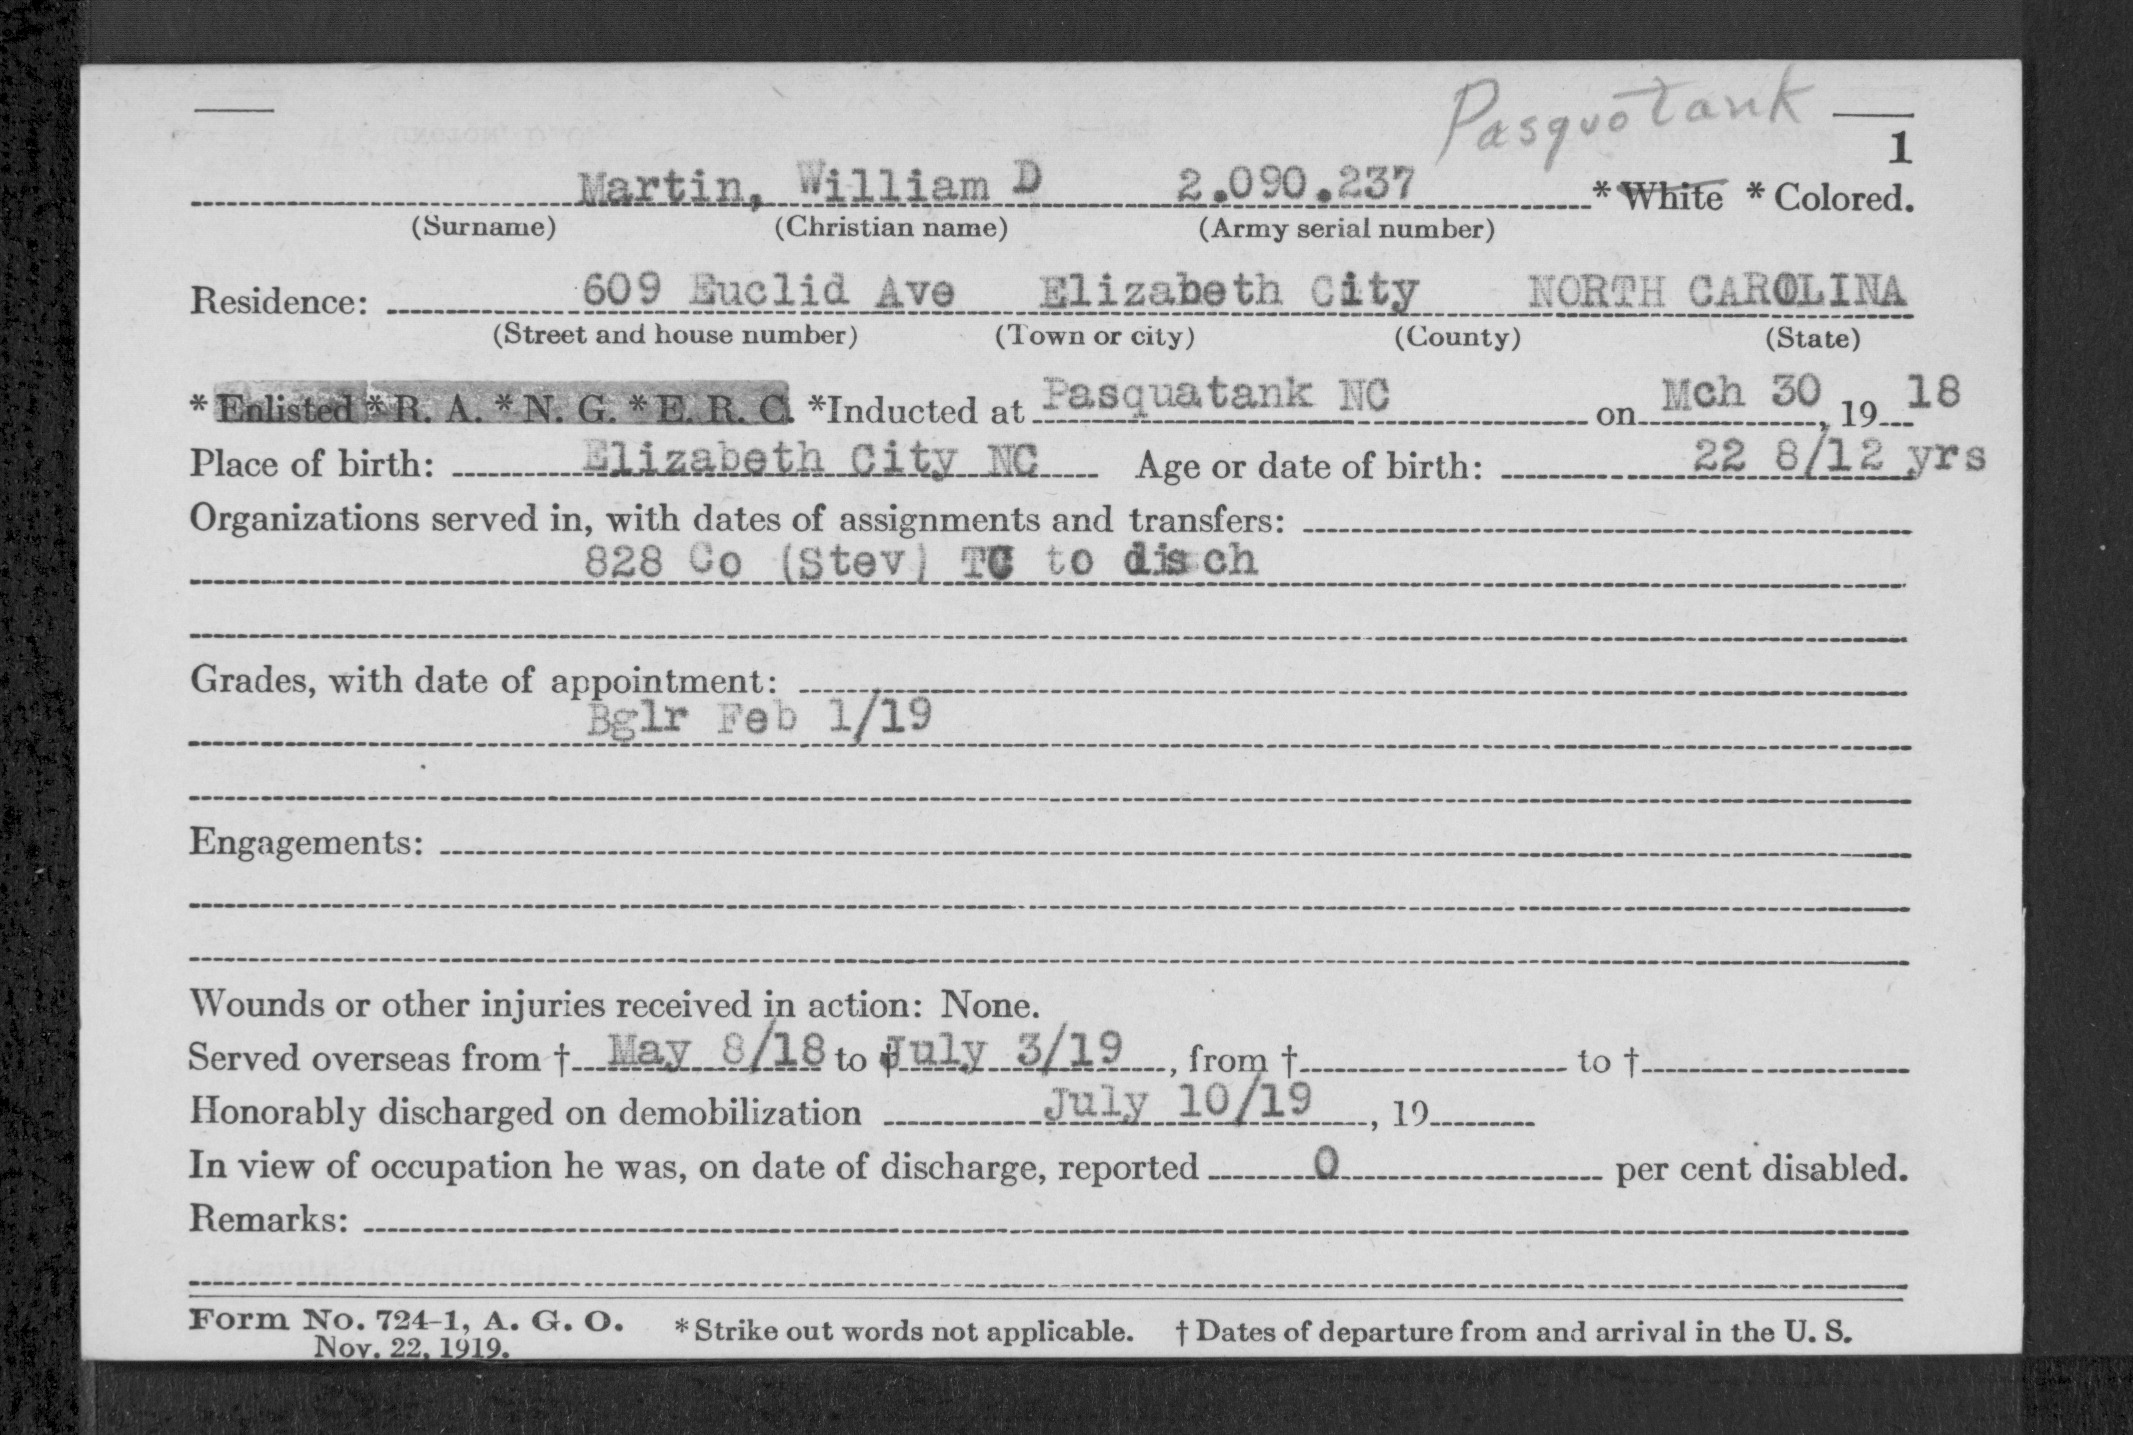 Pasquotank
1
Martin, William D 2.090.237 * White * Colored.
(Surname) (Christian name) (Army serial number)
Residence: 609 Euclid Ave Elizabeth City NORTH CAROLINA
(Street and house number) (Town or city) (County) (State)
* Enlisted * R. A. * N. G. * E. R. C. *Inducted at Pasquatank NC on Mch 30, 19 18
Place of birth: Elizabeth City NC Age or date of birth: 22 8/12 yrs
Organizations served in, with dates of assignments and transfers:
828 Co (Stev) TC to disch
Grades, with date of appointment:
Bglr Feb 1/19
Engagements:
Wounds or other injuries received in action: None.
Served overseas from † May 8/18 to † July 3/19, from † to †
Honorably discharged on demobilization July 10/19, 19
In view of occupation he was, on date of discharge, reported 0 per cent disabled.
Remarks:
Form No. 724-1, A. G. O. * Strike out words not applicable. † Dates of departure from and arrival in the U. S.
Nov. 22, 1919.